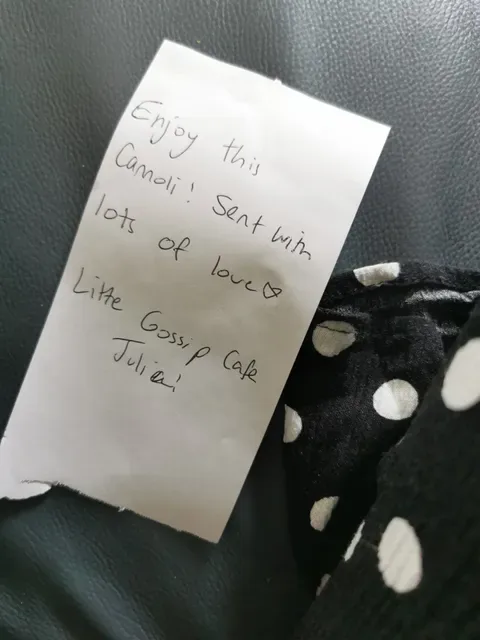 Enjoy this
Canoli! Sent with
lots of love♡
Little Gossip Cafe
Julia!